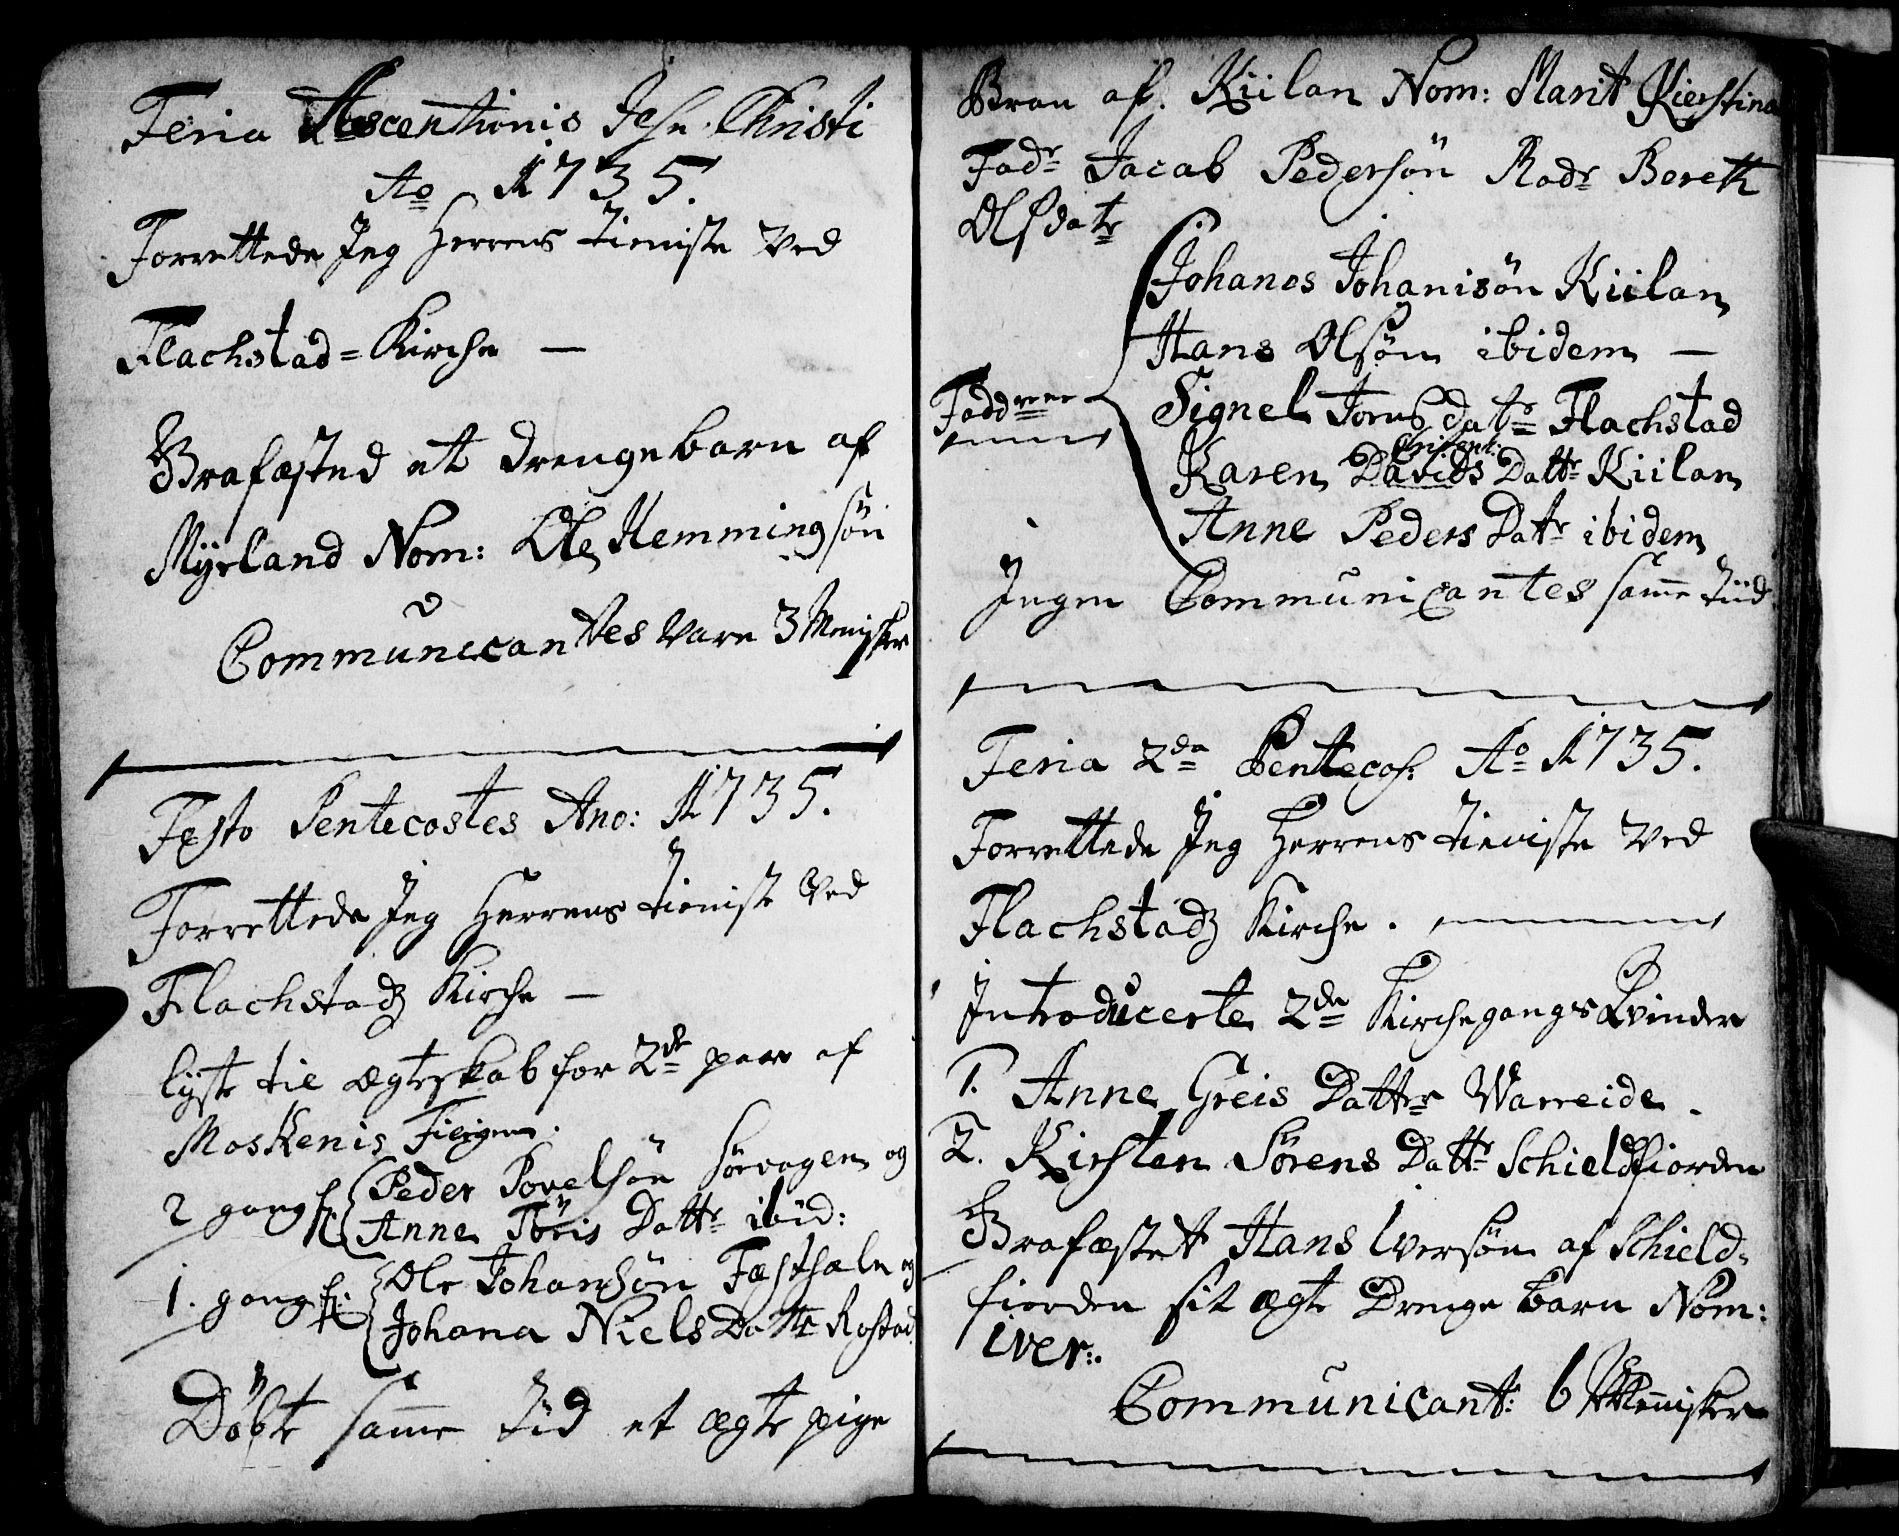 Feria Ascentionis Jesu Christi
Ao 1735.
Forrettede Jeg Herrens tieniste Ved
Flachstad = Kirche —
Grafæsted et drengebarn af
Myrland Nom: Ole Hemmingsøn
Communicantes vare 3 Mennisker
Festo Pentecostes Ano: 1735.
Forrettede Jeg Herrens tienist Ved
Flachstadz Kirche —
lyste til ægteskab for 2de par af
Moskenis Fierigen.
2 gang Peder Povelsøn Sørvagen og
Anne Töris Dattr ibid:
1. gang Ole Johansøn Festhæln og
Johana Niels Dattr Rostad
Döbte samme tid et ægte pige
Bran af Kiilan Nom: Marit Kierstina
Fadr Jacab Pedersön Modr Bereth
Olsdatr
Johanes Johanisön Kiilan
Hans Olsøn ibidem —
Faddrene
Signel Joens datr Flachstad
Karen Davids Dattr Kiilan
Anne Peders Datr ibidem
Ingen Communicantes samme tiid
Feria 2da Pentecos: Ao 1735.
Forrettede Jeg Herrens tieniste Ved
Flachstadz Kirche.
Introducerte 2de Kirchegangs Qvinder
1. Anne Greis Dattr Wareide.
2. Kirsten Sörens Dattr Schieldfiorden
Grafæstet Hans Iversøn af Schield-
fiorden sit ægte Drenge barn Nom:
Iver:.
Communicant: 6 Mennisker